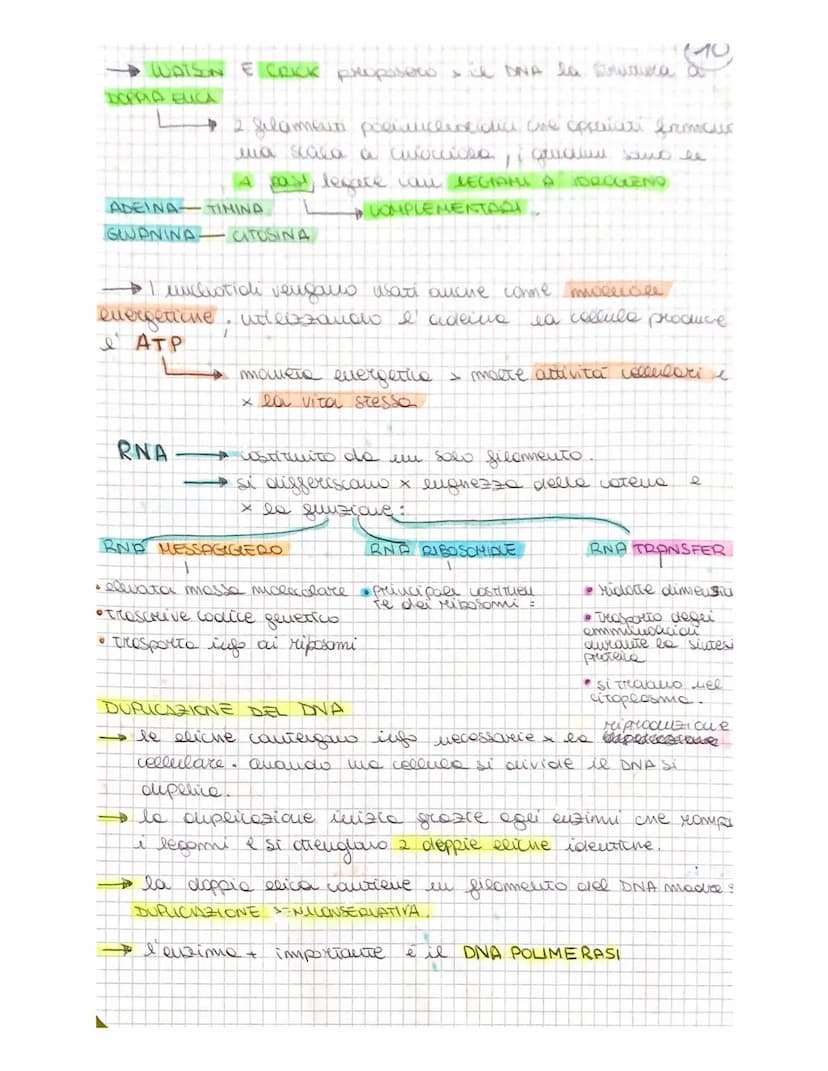 10
→ WATSON E CRICK proposero x il DNA la struttura a
DOPPIA ELICA
2 filamenti polinucleotidici che appaiati formano
una scala a chiocciola, i gradini sono le
4 basi legate con LEGAMI A IDROGENO
ADEINA — TIMINA → COMPLEMENTARI.
GUANINA — CITOSINA
→ I nucleotidi vengano usati anche come molecole
energetiche, utilizzando l'adeina la cellula produce
l' ATP
→ moneta energetica x molte attività cellulari e
x la vita stessa
RNA → costituito da un solo filamento.
→ si differiscano x lunghezza della catena e
x la funzione:
RNA MESSAGGIERO RNA RIBOSOMIALE RNA TRANSFER
• elevata massa molecolare • principali costituen • ridotte dimensio
• trascrive codice genetico te dei ribosomi = • trasporto degli
• trasporta info ai ribosomi amminoacidi
durante la sintesi
proteica
• si trovano nel
citoplasma.
DUPLICAZIONE DEL DNA
riproduzione
→ le eliche contengano info necessarie x la
cellulare. quando una cellula si divide il DNA si
duplica.
→ la duplicazione inizia grazie agli enzimi che rompo
i legami e si ottengano 2 doppie eliche identiche.
→ la doppia elica contiene un filamento del DNA madre:
DUPLICAZIONE SEMICONSERVATIVA.
→ l'enzima + importante è il DNA POLIMERASI